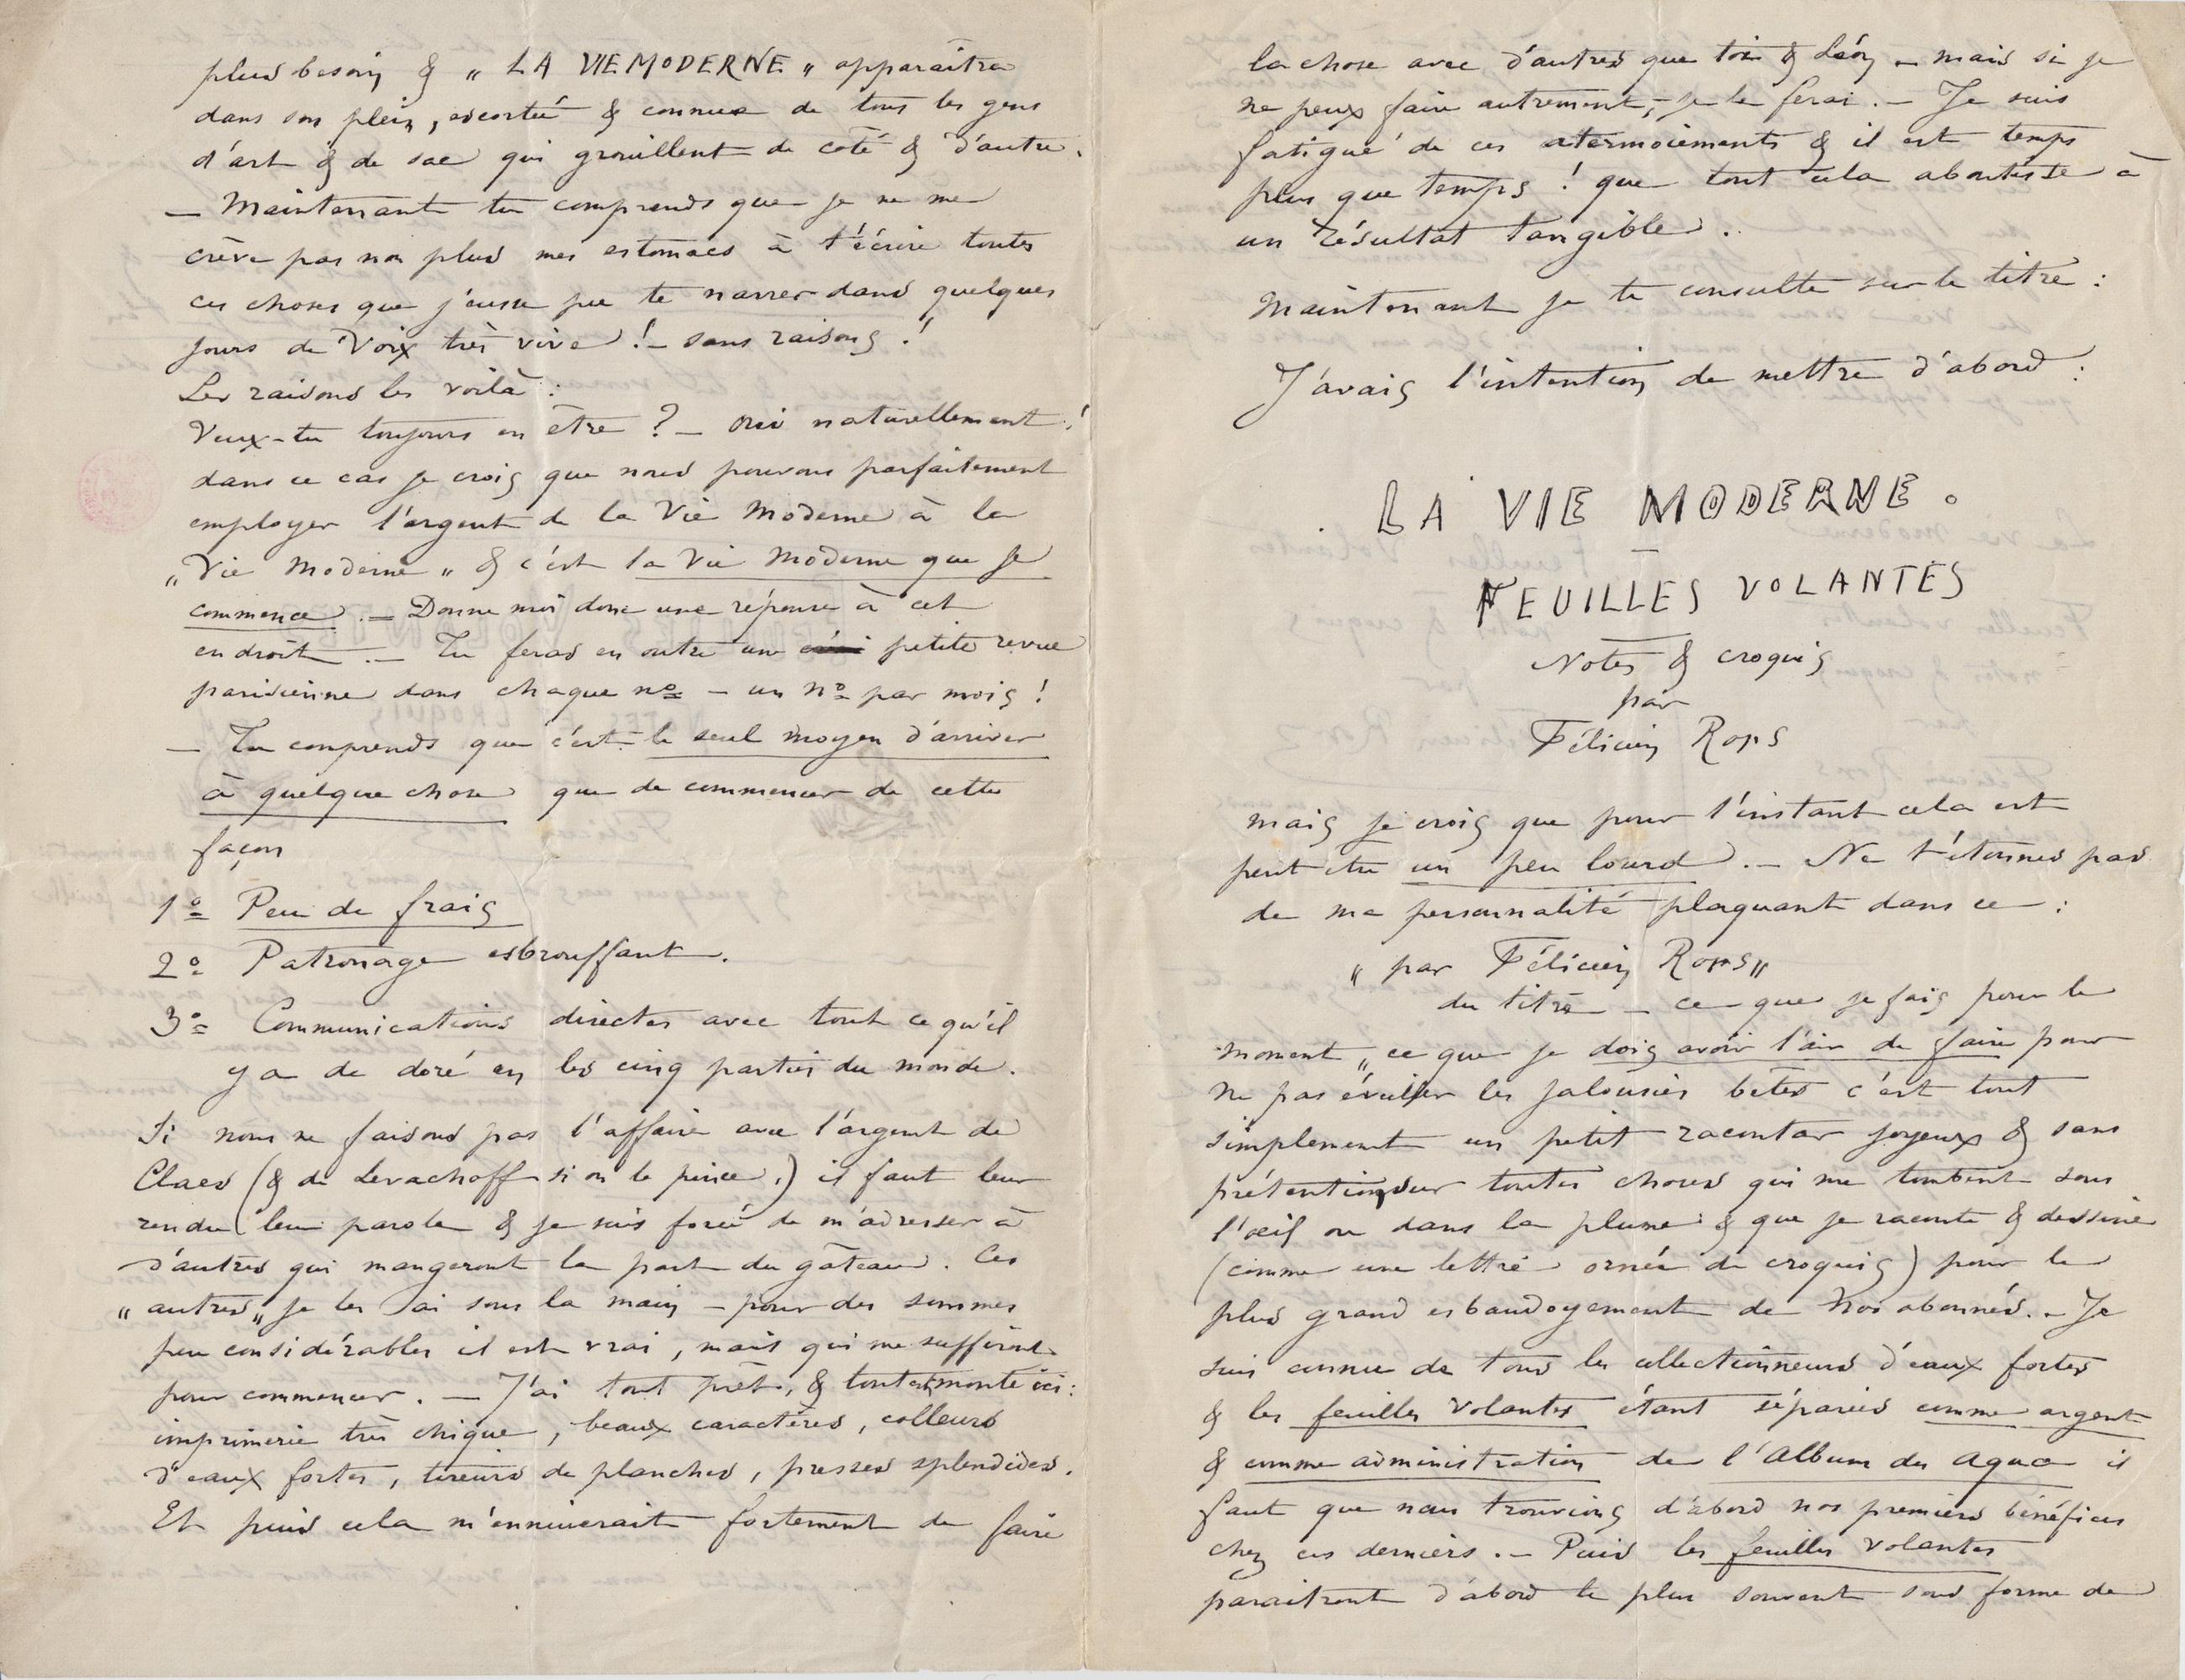 plus besoin & „ LA VIE MODERNE „ apparaîtra
dans son plein, escortée & connue de tous les gens
d'art & de sac qui grouillent de côté & d'autre.
– Maintenant tu comprends que je ne me
crève pas non plus mes estomacs à t'écrire toutes
ces choses que j'eusse pu te narrer dans quelques
jours de Voix très vive ! – sans raisons !
Les raisons les voilà :
Veux-tu toujours en être ? – oui naturellement !
dans ce cas je crois que nous pouvons parfaitement
employer l'argent de la Vie Moderne à la
„ Vie Moderne „ & c'est la Vie Moderne que je
commence. – Donne moi donc une réponse à cet
endroit. – Tu feras en outre une petite revue
parisienne dans chaque nº – un nº par mois !
– Tu comprends que c'est le seul moyen d'arriver
à quelque chose que de commencer de cette
façon
1º Peu de frais
2º Patronage esbrouffant.
3º Communications directes avec tout ce qu'il
y a de doré en les cinq parties du monde.
Si nous ne faisons pas l'affaire avec l'argent de
Claes (& de Levachoff si on le pince,) il faut leur
rendre leur parole & je suis forcé de m'adresser à
d'autres qui mangeront la part du gâteau. Ces
„ autres „ je les ai sous la main – pour des sommes
peu considérables il est vrai, mais qui me suffiront
pour commencer. – J'ai tout prêt, & tout est monté ici :
imprimerie très chique, beaux caractères, colleurs
d'eaux fortes, tireurs de planches, presses splendides.
Et puis cela m'ennuierait fortement de faire
la chose avec d'autres que toi & Léon – mais si je
ne peux faire autrement, – je le ferai. – Je suis
fatigué de ces atermoiements & il est temps
plus que temps ! que tout cela aboutisse à
un résultat tangible.
Maintenant je te consulte sur le titre :
J'avais l'intention de mettre d'abord :
LA VIE MODERNE.
–
FEUILLES VOLANTES
Notes & croquis
par
Félicien Rops
mais je crois que pour l'instant cela est
peut être un peu lourd. – Ne t'étonnes pas
de ma personnalité plaquant dans ce :
„ par Félicien Rops „
du titre – ce que je fais pour le
moment „ ce que je dois avoir l'air de faire pour
ne pas éveiller les jalousies bêtes c'est tout
simplement un petit racontar joyeux & sans
prétention sur toutes choses qui me tombent sous
l'œil ou dans la plume & que je raconte & dessine
(comme une lettre ornée de croquis) pour le
plus grand esbaudoyement de Nos abonnés. – Je
suis connu de tous les collectionneurs d'eaux fortes
& les feuilles volantes étant séparées comme argent
& comme administration de l'Album du Aqua il
faut que nous trouvions d'abord nos premiers bénéfices
chez ces derniers. – Puis les feuilles volantes
paraîtront d'abord le plus souvent sous forme de